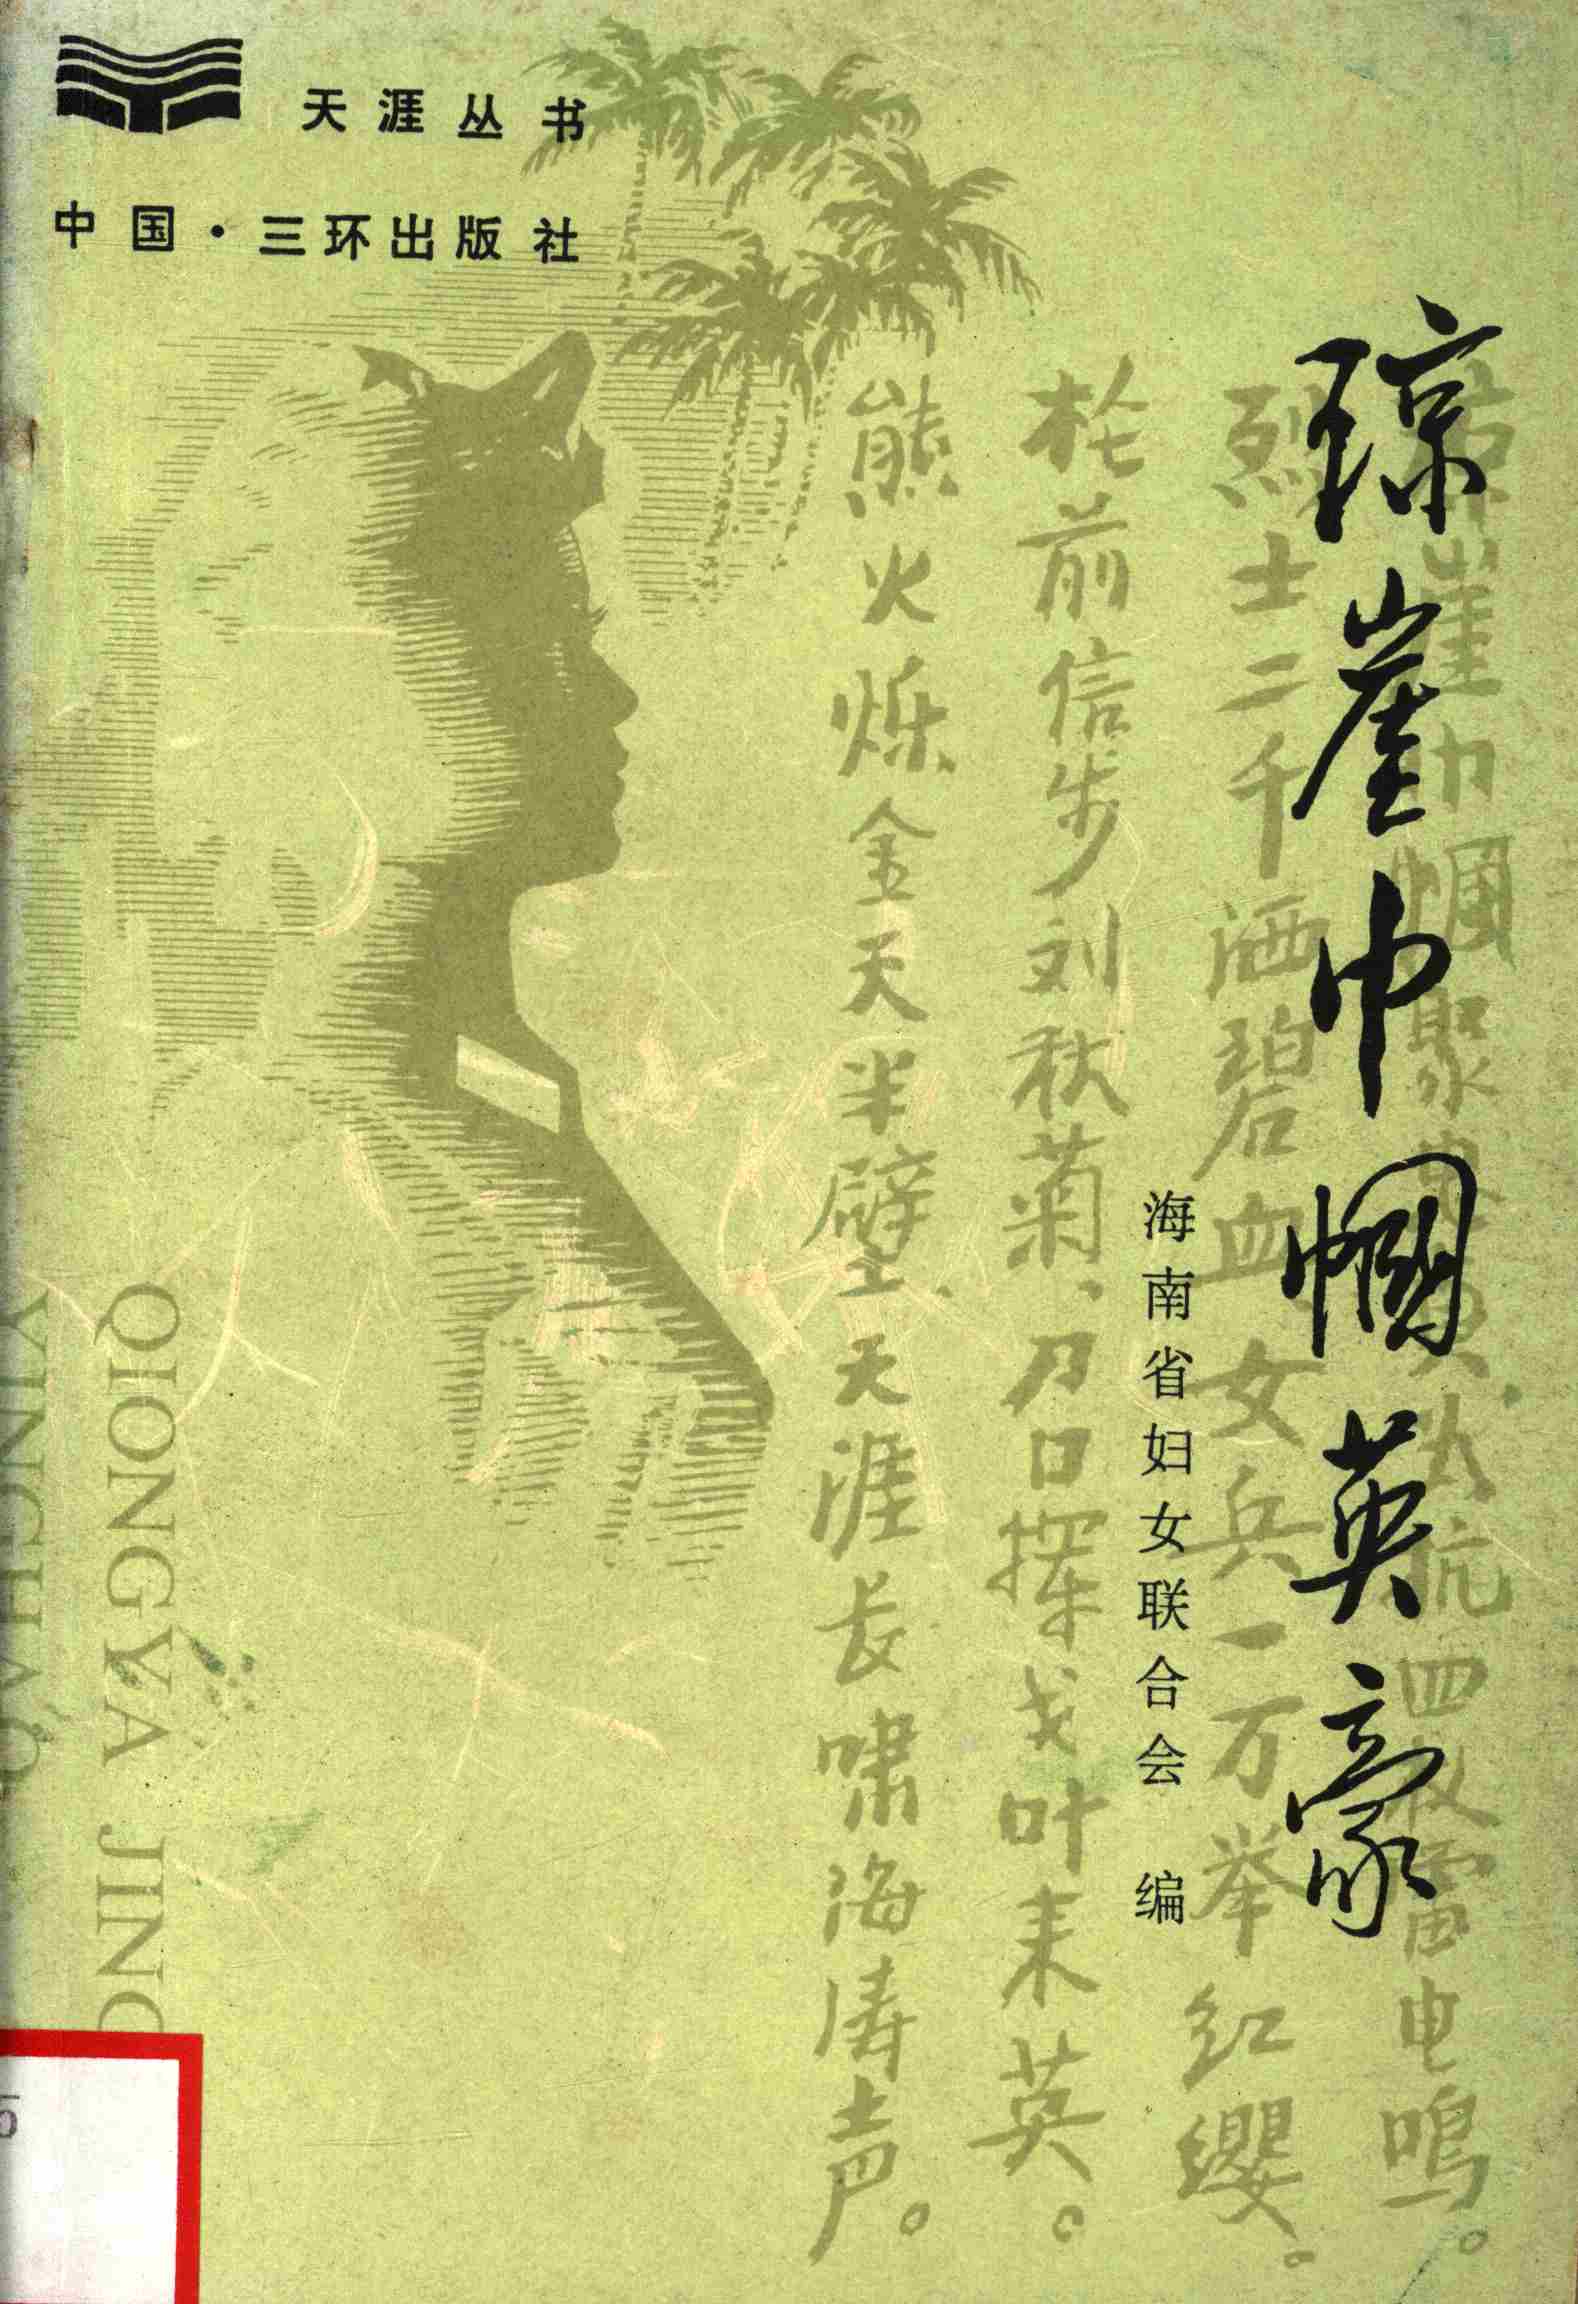 天涯丛书
中国·三环出版社
琼崖巾帼英豪
海南省妇女联合会 编
崖巾帼聚 抗四 雷电鸣。
烈士二千洒碧血、女兵一万举红缨。
前信步刘秋菊、刀口挥戈叶来英。
熊火烁金天半壁、天涯长啸海涛声。
QIONGYA JING
YINGHAO